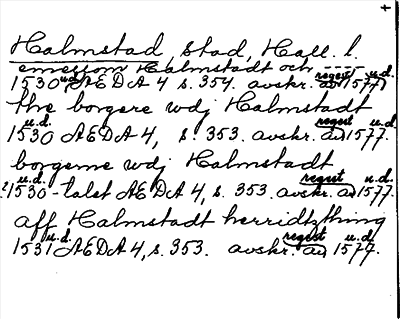 +
Halmstad, stad, Hall. l.
emellom Halmstadt och ----
1530 u.d. AEDA 4 s. 354. avskr. av regest 1577 u.d.
the borgere wdj Halmstadt
1530 u.d. AEDA 4, s. 353. avskr. av regest 1577 u.d.
borgerne wdj Halmstadt
1530-talet u.d. AEDA 4, s. 353. avskr. av regest 1577 u.d.
aff Halmstadt herridtzthing
1531 u.d. AEDA 4, s. 353. avskr. av regest 1577 u.d.